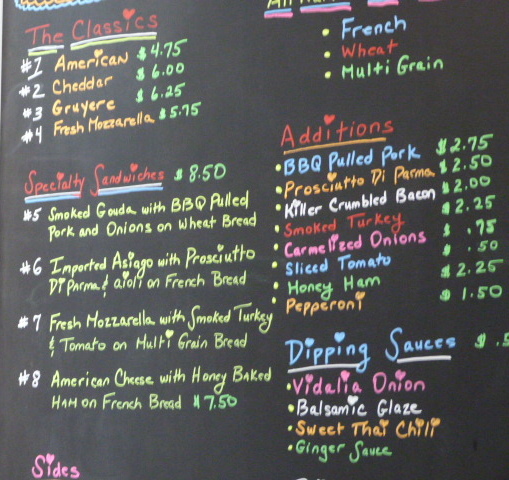 The Classics
#1 American $4.75
#2 Cheddar $6.00
#3 Gruyere $6.25
#4 Fresh Mozzarella $5.75
Specialty Sandwiches $8.50
#5 Smoked Gouda with BBQ Pulled
Pork and Onions on Wheat Bread
#6 Imported Asiago with Prosciutto
Di Parma & aioli on French Bread
#7 Fresh Mozzarella with Smoked Turkey
& Tomato on Multi Grain Bread
#8 American Cheese with Honey Baked
Ham on French Bread $7.50
Sides
• French
• Wheat
• Multi Grain
Additions
• BBQ Pulled Pork $2.75
• Prosciutto Di Parma $2.50
• Killer Crumbled Bacon $2.00
• Smoked Turkey $2.25
• Carmelized Onions $.75
• Sliced Tomato $.50
• Honey Ham $2.25
• Pepperoni $1.50
Dipping Sauces $.5
• Vidalia Onion
• Balsamic Glaze
• Sweet Thai Chili
• Ginger Sauce